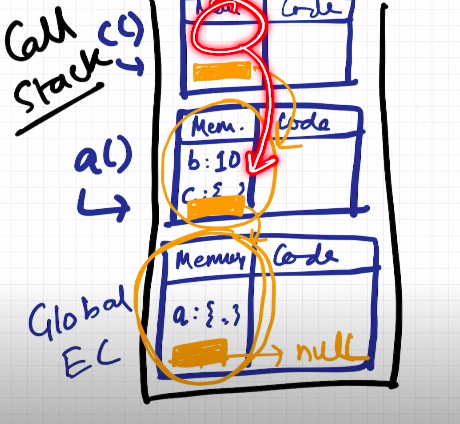 Call
Stack
c()
Mem. Code
a()
Mem. Code
b:10
c:{ }
Global
EC
Memory Code
a:{..}
null